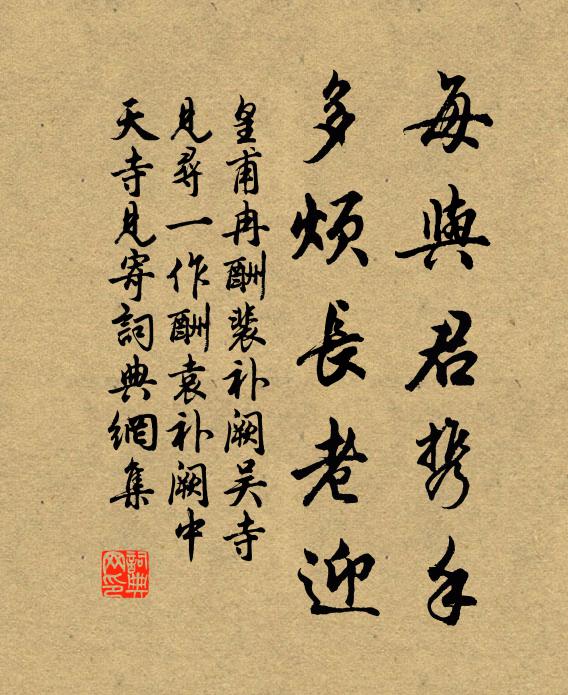 每與君携手
多煩長老迎
皇甫冉酬裴补阙吴寺
見尋一作酬袁补阙中
天寺見寄詞典網集
詞典
网印